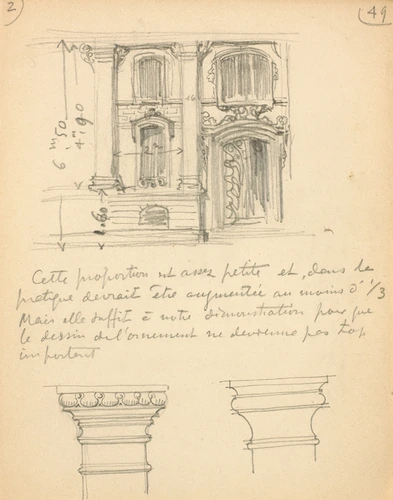 2
49
6 m 50
4 m 90
1.60
Cette proportion est assez petite et, dans la
pratique devrait être augmentée au moins d'1/3
Mais elle suffit à notre démonstration pour que
le dessin de l'ornement ne devienne pas trop
important